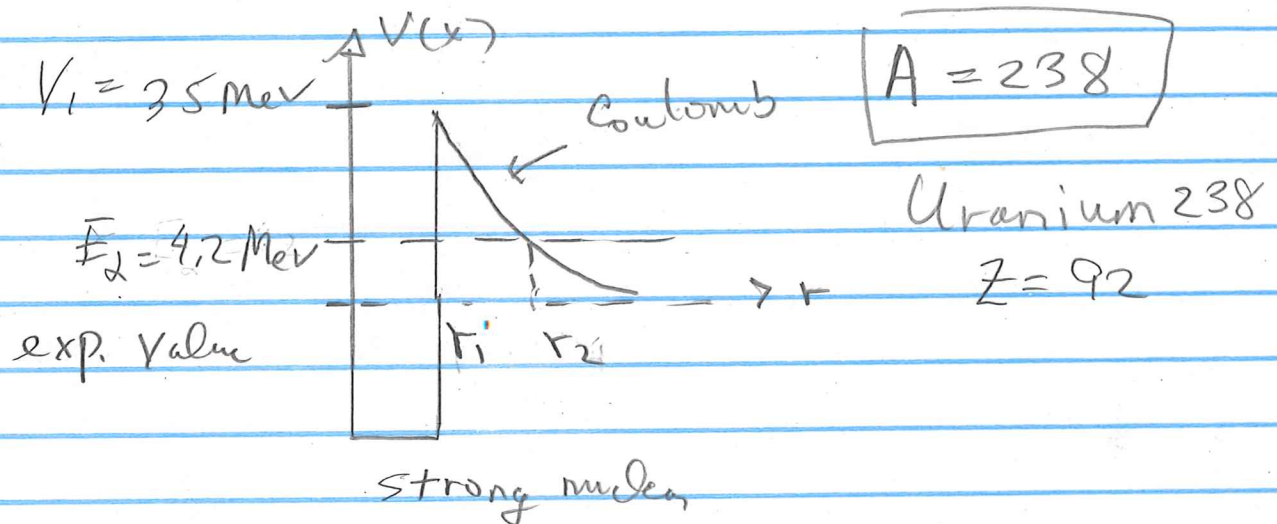 V(x)
V₁ = 35 MeV
A = 238
Coulomb
Uranium 238
E_α = 4.2 MeV
Z = 92
r
exp. Value
r₁ r₂
strong nuclear